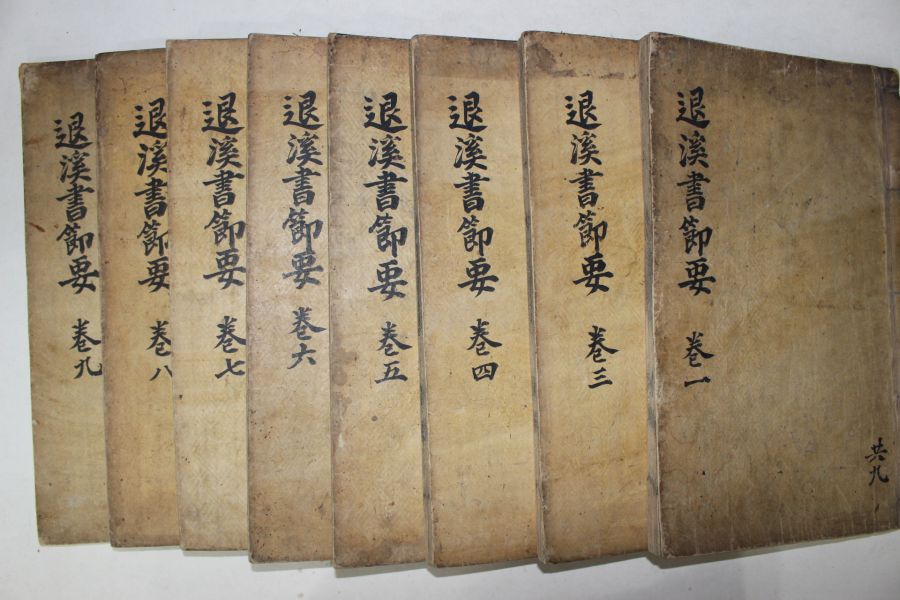 退溪書節要 卷一
共九
退溪書節要 卷三
退溪書節要 卷四
退溪書節要 卷五
退溪書節要 卷六
退溪書節要 卷七
退溪書節要 卷八
退溪書節要 卷九